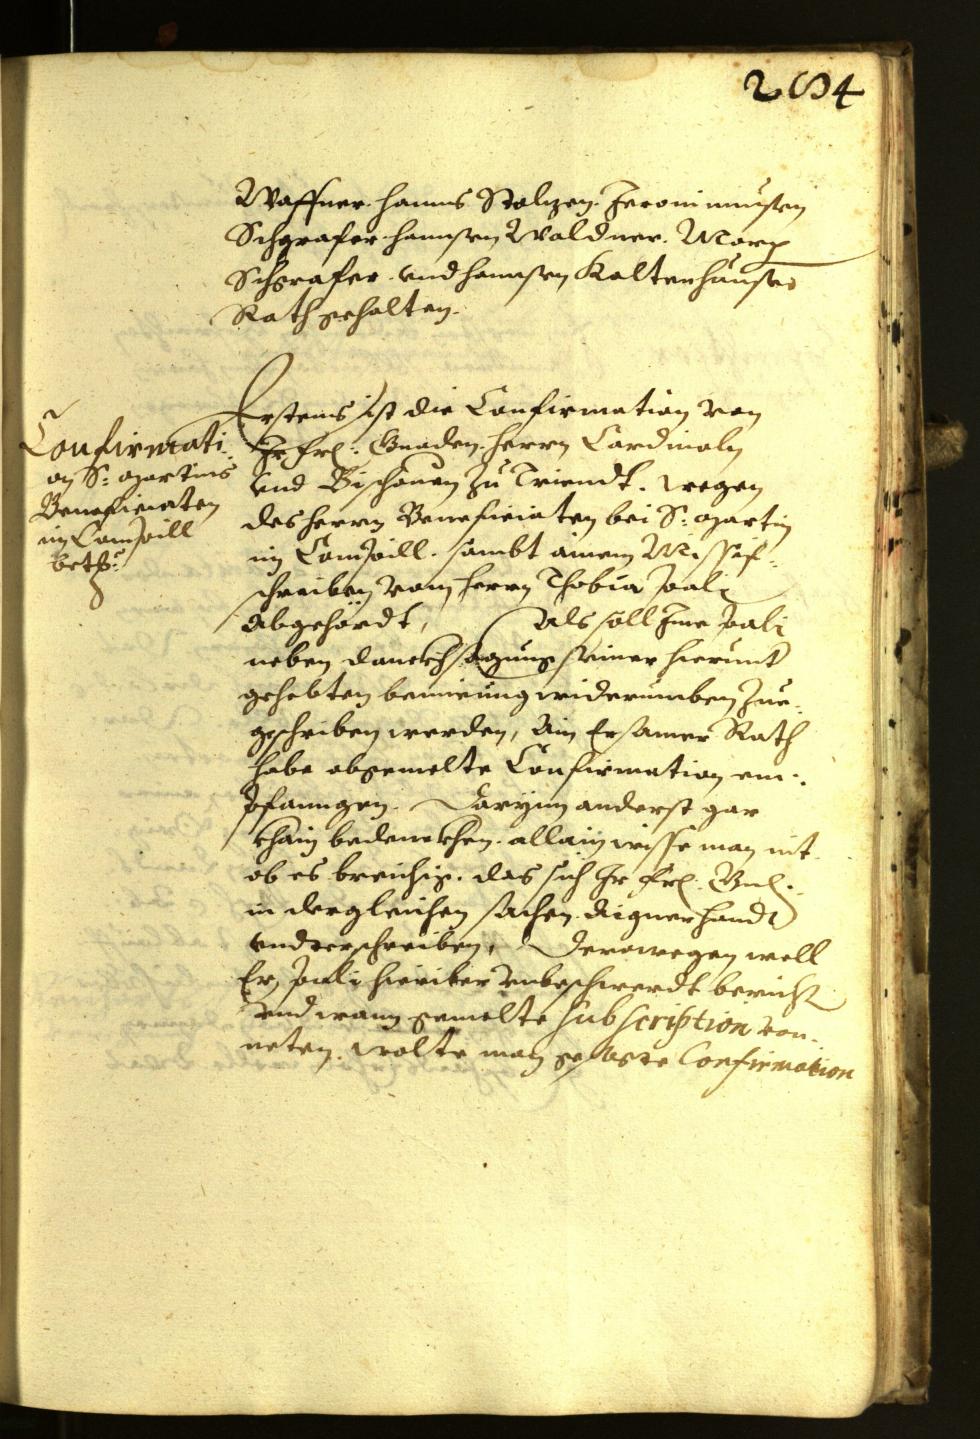 204
Waffner. Hanns Stolzen. Jeronimussen
Schgrafer. Hannsen Waldner. Marx
Schgrafer. und Hannsen Kaltenhauser
Rath gehalten.
Confirmati-
on S: Martins
Beneficiaten
im Campill
betr:
Erstens ist die Confirmation von
Ir frl: Gnaden. Herrn Cardinaln
und Bischouen zu Triendt. wegen
des Herrn Beneficiaten bei S: Martin
im Campill. sambt ainem Missif-
schreiben vom Herrn Thobia Pali
abgehördt, Als soll Ime Pali
neben danckhsagung seiner hierunt
gehebten bemieung widerumben zue-
geschriben werden, Ain Ersamer Rath
habe obgemelte Confirmation em-
pfanngen. Darynn anderst gar
khain bedenckhen. allain wisse man nit
ob es breichig. das sich Ir frl. Gnd.
in dergleichen sachen. aigner handt
underschreiben, Derowegen well
Er Pali hierüber unbeschwerdt bericht
und wann gemelte subscription von-
neten. wolte man gehebte Confirmation